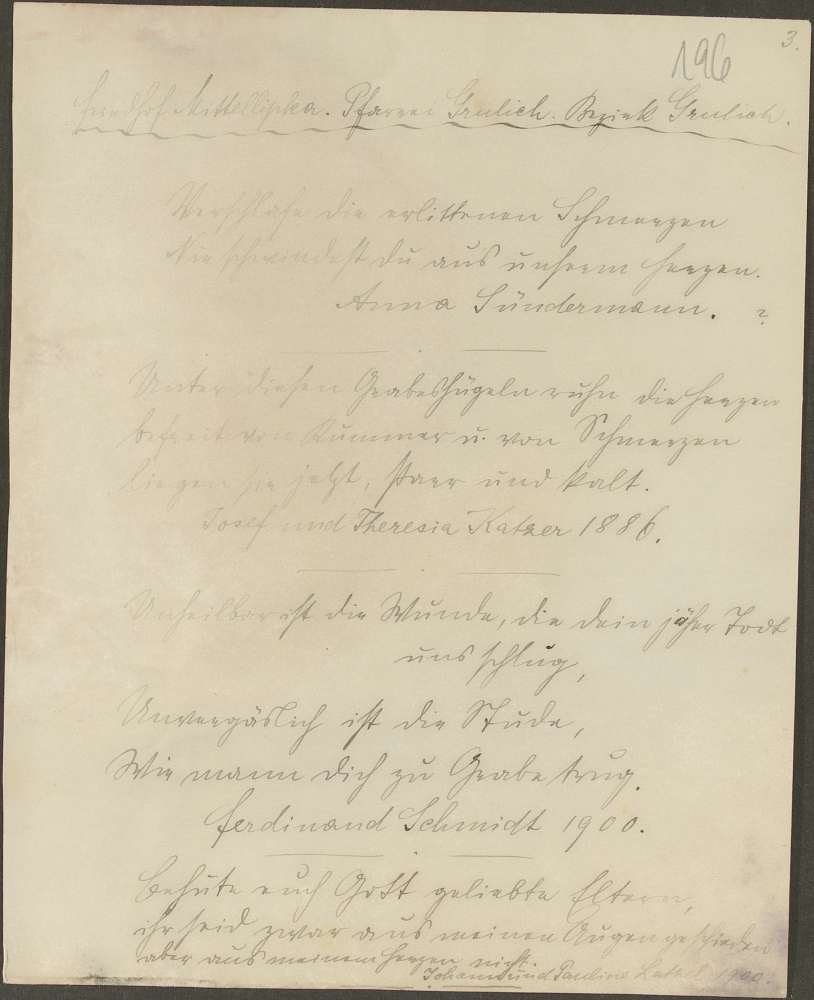 3.
196
Friedhof Mittellipka. Pfarrei Grulich. Bezirk Grulich.
Verschlafe die erlittenen Schmerzen
Nie schwindest du aus unserm Herzen.
Anna Sündermann. ?
Unter diesen Grabeshügeln ruhn die Herzen
befreit von Kummer u. von Schmerzen
liegen sie jetzt, starr und kalt.
Josef und Theresia Katzer 1886.
Unheilbar ist die Wunde, die dein jäher Todt
uns schlug,
Unvergäslich ist die Stude,
Wie mann dich zu Grabe trug.
Ferdinand Schmidt 1900.
Behüte euch Gott geliebte Eltern,
ihr seid zwar aus meinen Augen geschieden
aber aus meinem Herzen nicht.
Johann und Pauline 1900.